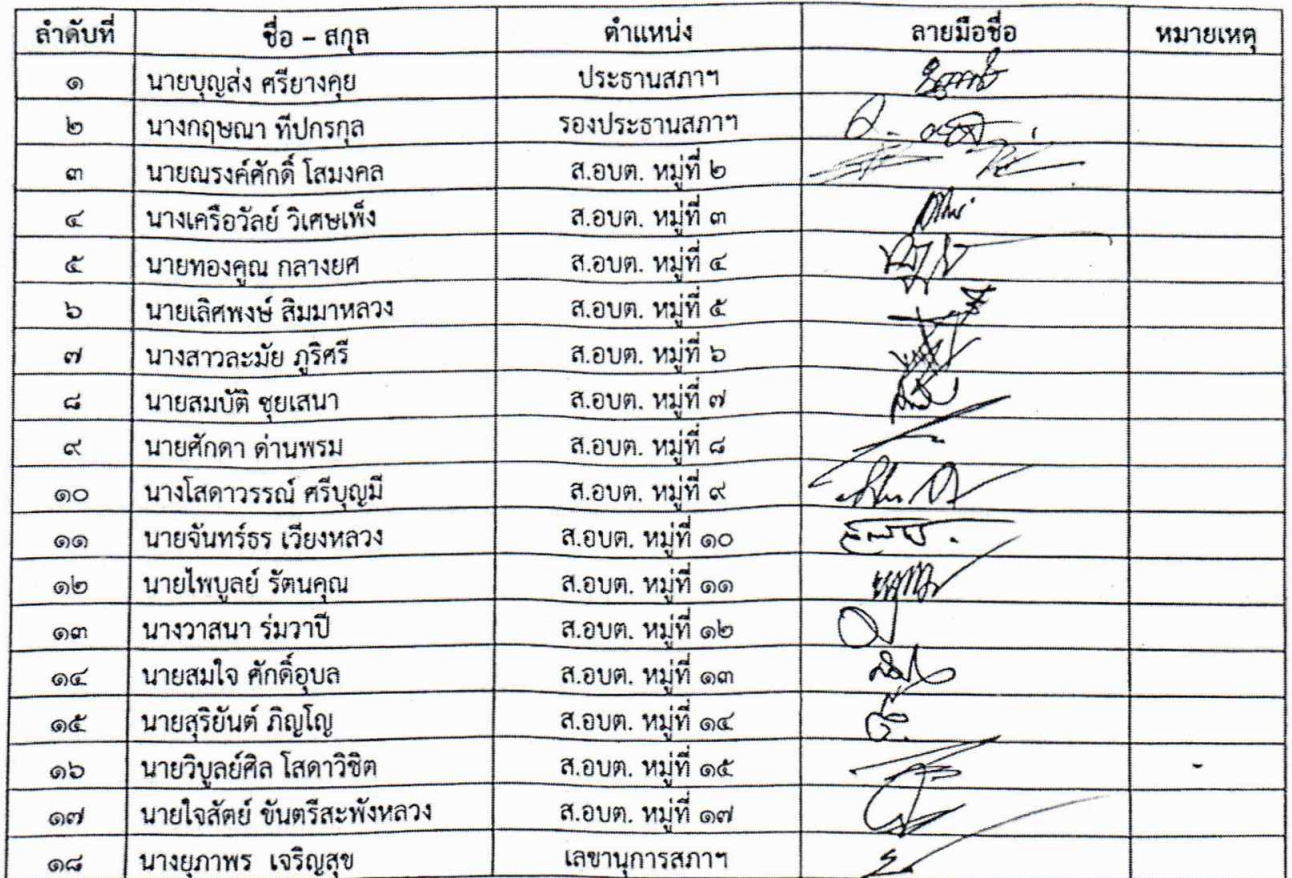 ลำดับที่ ชื่อ – สกุล ตำแหน่ง ลายมือชื่อ หมายเหตุ
๑ นายบุญส่ง ศรียางคุย ประธานสภาฯ
๒ นางกฤษณา ทีปกรกุล รองประธานสภาฯ
๓ นายณรงค์ศักดิ์ โสมงคล ส.อบต. หมู่ที่ ๒
๔ นางเครือวัลย์ วิเศษเพ็ง ส.อบต. หมู่ที่ ๓
๕ นายทองคูณ กลางยศ ส.อบต. หมู่ที่ ๔
๖ นายเลิศพงษ์ สิมมาหลวง ส.อบต. หมู่ที่ ๕
๗ นางสาวละมัย ภูริศรี ส.อบต. หมู่ที่ ๖
๘ นายสมบัติ ชุยเสนา ส.อบต. หมู่ที่ ๗
๙ นายศักดา ด่านพรม ส.อบต. หมู่ที่ ๘
๑๐ นางโสดาวรรณ์ ศรีบุญมี ส.อบต. หมู่ที่ ๙
๑๑ นายจันทร์ธร เวียงหลวง ส.อบต. หมู่ที่ ๑๐
๑๒ นายไพบูลย์ รัตนคุณ ส.อบต. หมู่ที่ ๑๑
๑๓ นางวาสนา ร่มวาปี ส.อบต. หมู่ที่ ๑๒
๑๔ นายสมใจ ศักดิ์อุบล ส.อบต. หมู่ที่ ๑๓
๑๕ นายสุริยันต์ ภิญโญ ส.อบต. หมู่ที่ ๑๔
๑๖ นายวิบูลย์ศิล โสดาวิชิต ส.อบต. หมู่ที่ ๑๕ -
๑๗ นายใจสัตย์ ขันตรีสะพังหลวง ส.อบต. หมู่ที่ ๑๗
๑๘ นางยุภาพร เจริญสุข เลขานุการสภาฯ